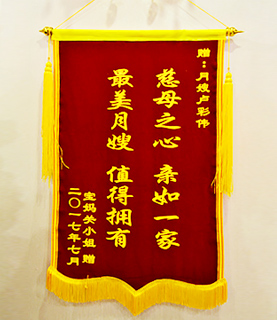 赠：月嫂卢彩伟
慈母之心 亲如一家
最美月嫂 值得拥有
宝妈关小姐 赠
二〇一七年七月